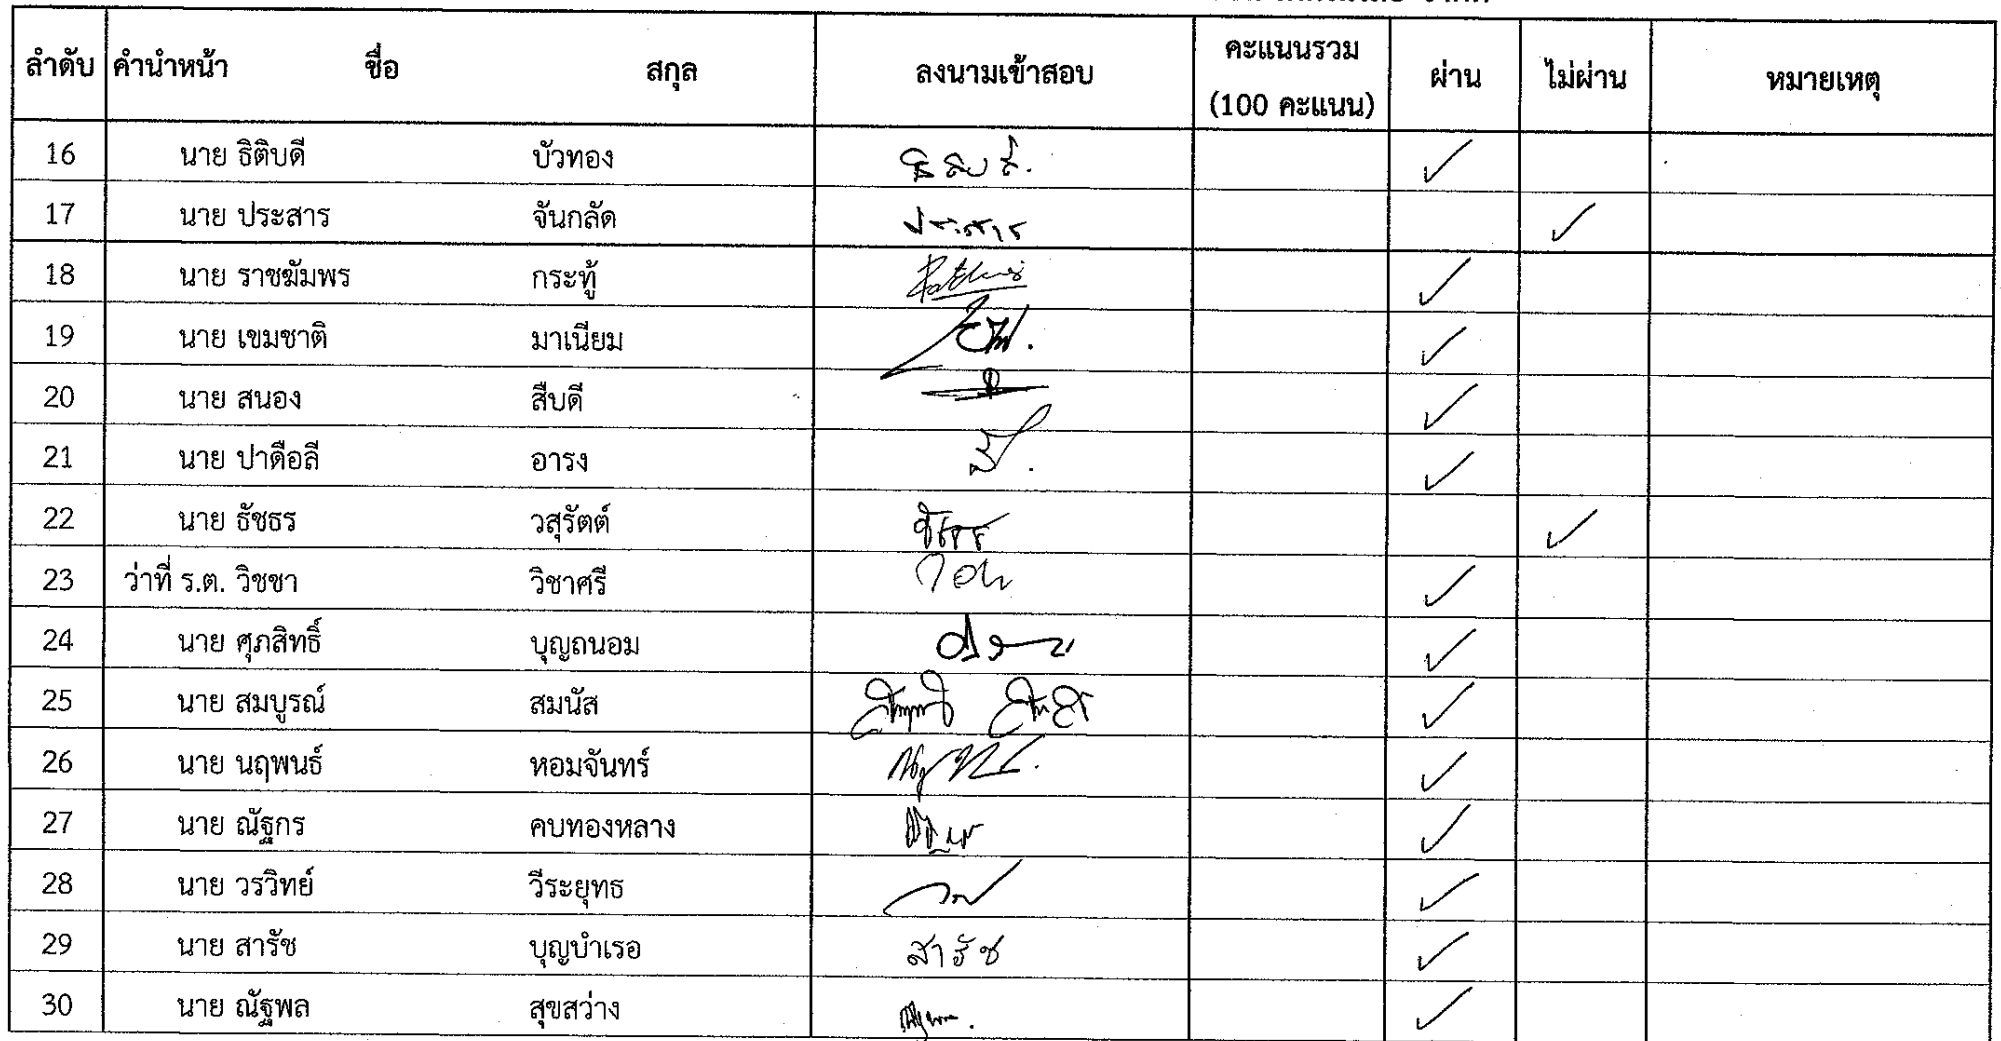 ลำดับ คำนำหน้า ชื่อ สกุล ลงนามเข้าสอบ คะแนนรวม (100 คะแนน) ผ่าน ไม่ผ่าน หมายเหตุ
16 นาย ธิติบดี บัวทอง ธิติบดี. ✓
17 นาย ประสาร จันกลัด ประสาร ✓
18 นาย ราชฆัมพร กระทู้ ✓
19 นาย เขมชาติ มาเนียม ✓
20 นาย สนอง สืบดี ✓
21 นาย ปาดือลี อารง ✓
22 นาย ธัชธร วสุรัตต์ ธัชธร ✓
23 ว่าที่ ร.ต. วิชชา วิชาศรี ✓
24 นาย ศุภสิทธิ์ บุญถนอม ✓
25 นาย สมบูรณ์ สมนัส ✓
26 นาย นฤพนธ์ หอมจันทร์ ✓
27 นาย ณัฐกร คบทองหลาง ✓
28 นาย วรวิทย์ วีระยุทธ ✓
29 นาย สารัช บุญบำเรอ สารัช ✓
30 นาย ณัฐพล สุขสว่าง ✓